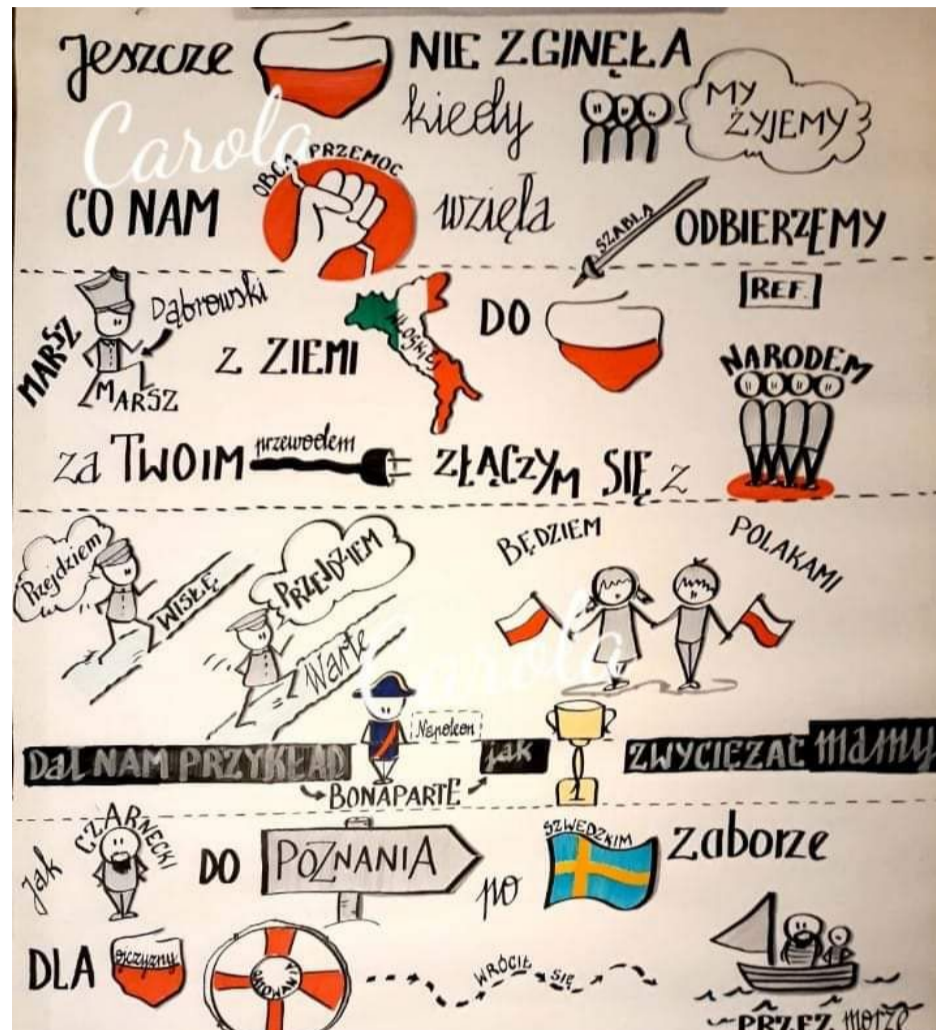 Jeszcze NIE ZGINĘŁA
kiedy MY ŻYJEMY
Carola
CO NAM OBCA PRZEMOC wzięła SZABLĄ ODBIERZEMY
MARSZ MARSZ Dąbrowski
Z ZIEMI WŁOSKIEJ DO
REF.
za TWOIM przewodem ZŁĄCZYM SIĘ z NARODEM
Przejdziem WISŁĘ PRZEJDZIEM Wartę
BĘDZIEM POLAKAMI
Carola
Dał NAM PRZYKŁAD Napoleon BONAPARTE jak 1 ZWYCIĘŻAĆ mamy
jak CZARNECKI DO POZNANIA po SZWEDZKIM zaborze
DLA ojczyzny RATOWANIA WRÓCIŁ SIĘ PRZEZ morze